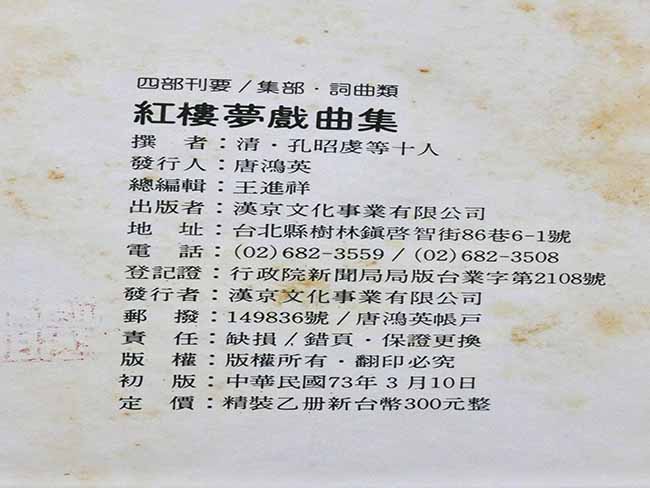 四部刊要/集部·詞曲類
紅樓夢戲曲集
撰　者：清·孔昭虔等十人
發行人：唐鴻英
總編輯：王進祥
出版者：漢京文化事業有限公司
地　址：台北縣樹林鎭啓智街86巷6-1號
電　話：(02)682-3559/(02)682-3508
登記證：行政院新聞局局版台業字第2108號
發行者：漢京文化事業有限公司
郵　撥：149836號/唐鴻英帳戶
責　任：缺損/錯頁·保證更換
版　權：版權所有·翻印必究
初　版：中華民國73年3月10日
定　價：精裝乙册新台幣300元整